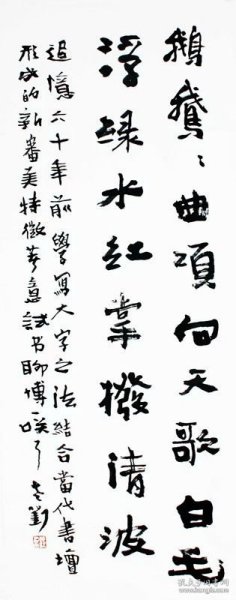 鵝鵞〻曲項向天歌白毛
浮绿水红掌撥清波
追憶六十年前學寫大字之法結合當代書壇
形成的新審美特徵著意試书聊博一咲了老劉